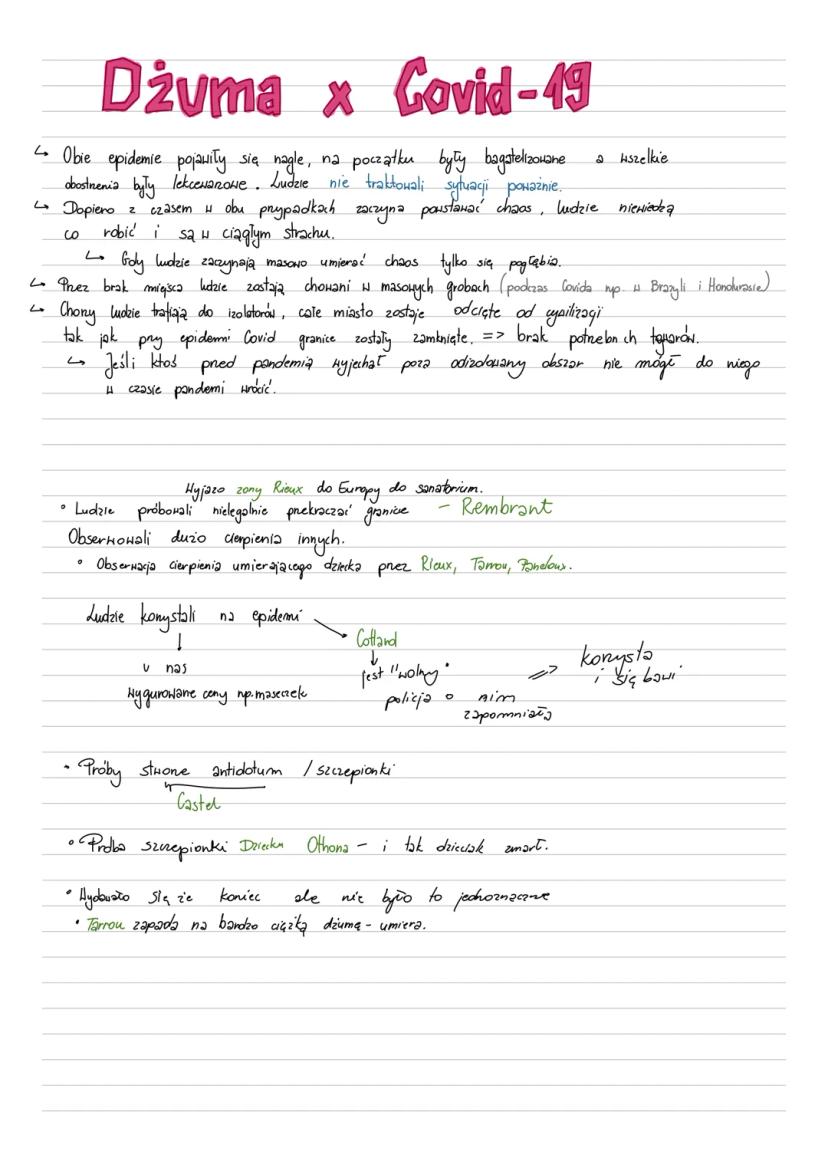 Dżuma x Covid-19
↳ Obie epidemie pojawiły się nagle, na początku były bagatelizowane a wszelkie
obostrzenia były lekceważone. Ludzie nie traktowali sytuacji poważnie.
↳ Dopiero z czasem w obu przypadkach zaczyna powstawać chaos, ludzie niewiedzą
co robić i są w ciągłym strachu.
↳ Gdy ludzie zaczynają masowo umierać chaos tylko się pogłębia.
↳ Przez brak miejsca ludzie zostają chowani w masowych grobach (podczas Covida np. w Brazyli i Hondurasie)
↳ Chorzy ludzie trafiają do izolatorów, całe miasto zostaje odcięte od cywilizacji
tak jak przy epidemi Covid granice zostały zamknięte. => brak potrzebn ch towarów.
↳ Jeśli ktoś przed pandemią wyjechał poza odizolowany obszar nie mógł do niego
w czasie pandemi wrócić.
Wyjazd żony Rieux do Europy do sanatorium.
• Ludzie próbowali nielegalnie przekraczać granice - Rembrant
Obserwowali dużo cierpienia innych.
• Obserwacja cierpienia umierającego dziecka przez Rieux, Tarrou, Paneloux.
Ludzie korzystali na epidemi
↓ Cottard
u nas ↓ jest "wolny" => korzysta
wygórowane ceny np. maseczek policja o nim i się bawi
zapomniała
• Próby stworze antidotum / szczepionki
Castel
• Próba szczepionki Dziecku Othona - i tak dzieciak zmarł.
• Wydawało się że koniec ale nie było to jednoznaczne
• Tarrou zapada na bardzo ciężką dżumę - umiera.